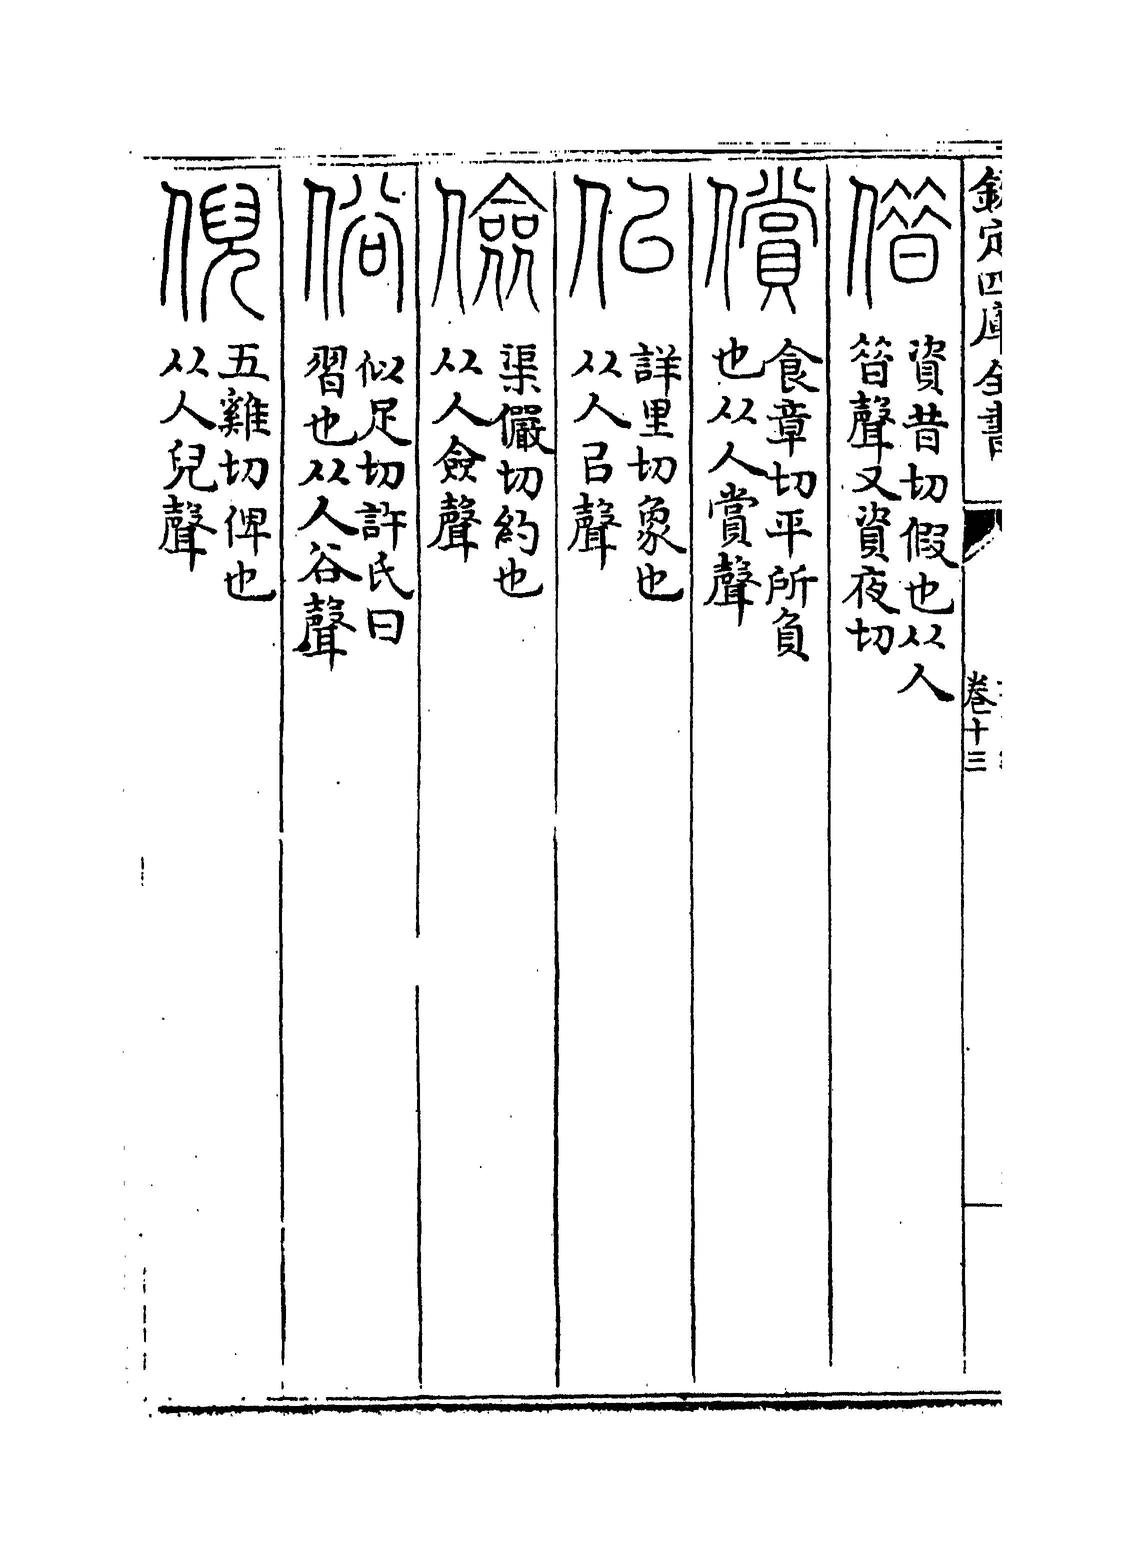 欽定四庫全書
卷十三
借
資昔切假也从人
㫺聲又資夜切
償
食章切平所負
也从人賞聲
佀
詳里切象也
从人㠯聲
儉
渠儼切約也
从人僉聲
俗
似足切許氏曰
習也从人谷聲
倪
五雞切俾也
从人兒聲